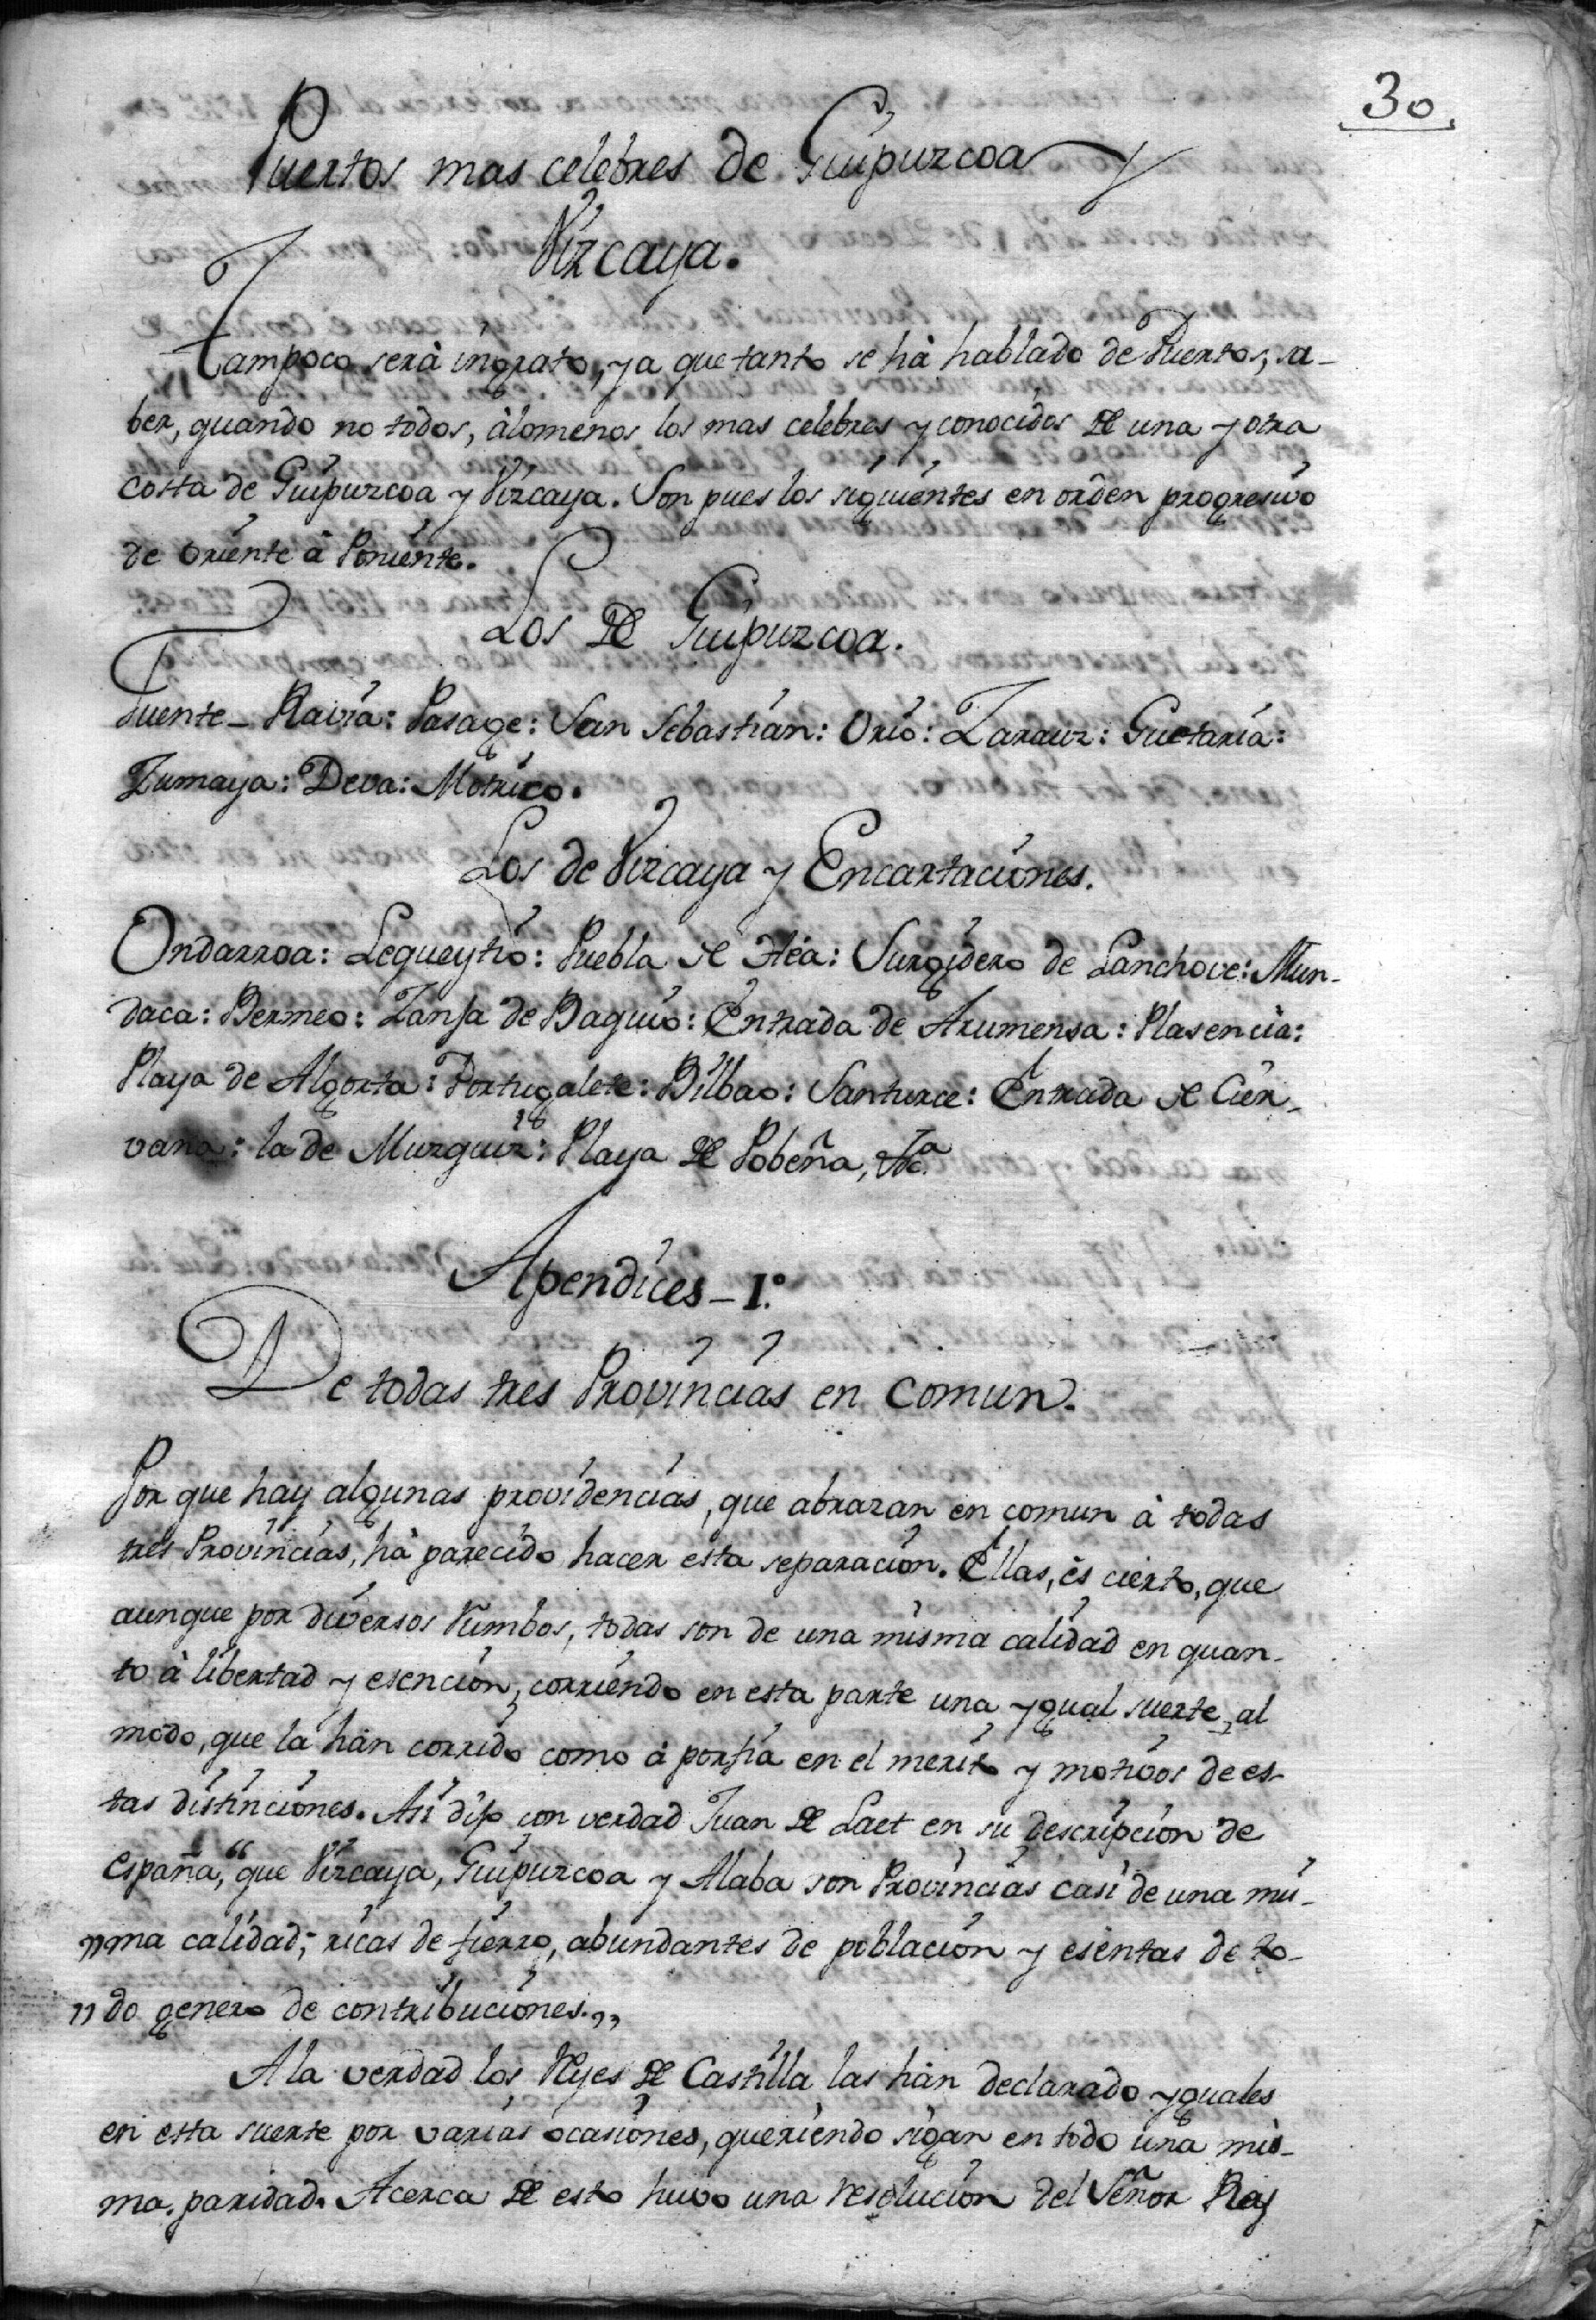 30
Puertos mas celebres de Guipuzcoa y
Vizcaya.
Tampoco serà ingrato, ya que tanto se hà hablado de Puertos, sa-
ber, quando no todos, àlomenos los mas celebres y conocidos de una y otra
costa de Guipuzcoa y Vizcaya. Son pues los siguientes en orden progresivo
de Oriente à Poniente.
Los de Guipuzcoa.
Fuente-Ravia: Pasage: San Sebastian: Orio: Zarauz: Guetaria:
Zumaya: Deva: Motrico.
Los de Vizcaya y Encartaciones.
Ondarroa: Lequeytio: Puebla de Hea: Surgidero de Lanchove: Mun-
daca: Bermeo: Zanja de Baquio: Entrada de Arumensa: Plasencia:
Playa de Algorta: Portugalete: Bilbao: Santurce: Entrada de Cier-
vana: la de Muzquiz: Playa de Pobeña, &c.ª
Apendices - I.º
De todas tres Provincias en comun.
Por que hay algunas providencias, que abrazan en comun à todas
tres Provincias, hà parecido hacer esta separacion. Ellas, ès cierto, que
aunque por diversos Rumbos, todas son de una misma calidad en quan-
to à libertad y esencion, corriendo en esta parte una ygual suerte, al
modo, que la hàn corrido como à porfia en el merito y motivos de es-
tas distinciones. Asi dijo con verdad Juan de Laet en su descripcion de
España, “que Vizcaya, Guipuzcoa y Alaba son Provincias casi de una mis-
„ma calidad; ricas de fierro, abundantes de poblacion y esentas de to-
„do genero de contribuciones.„
A la verdad los Reyes de Castilla las hàn declarado yguales
en esta suerte por varias ocasiones, queriendo sigan en todo una mis-
ma paridad. Acerca de esto huvo una resolucion del Señor Rey